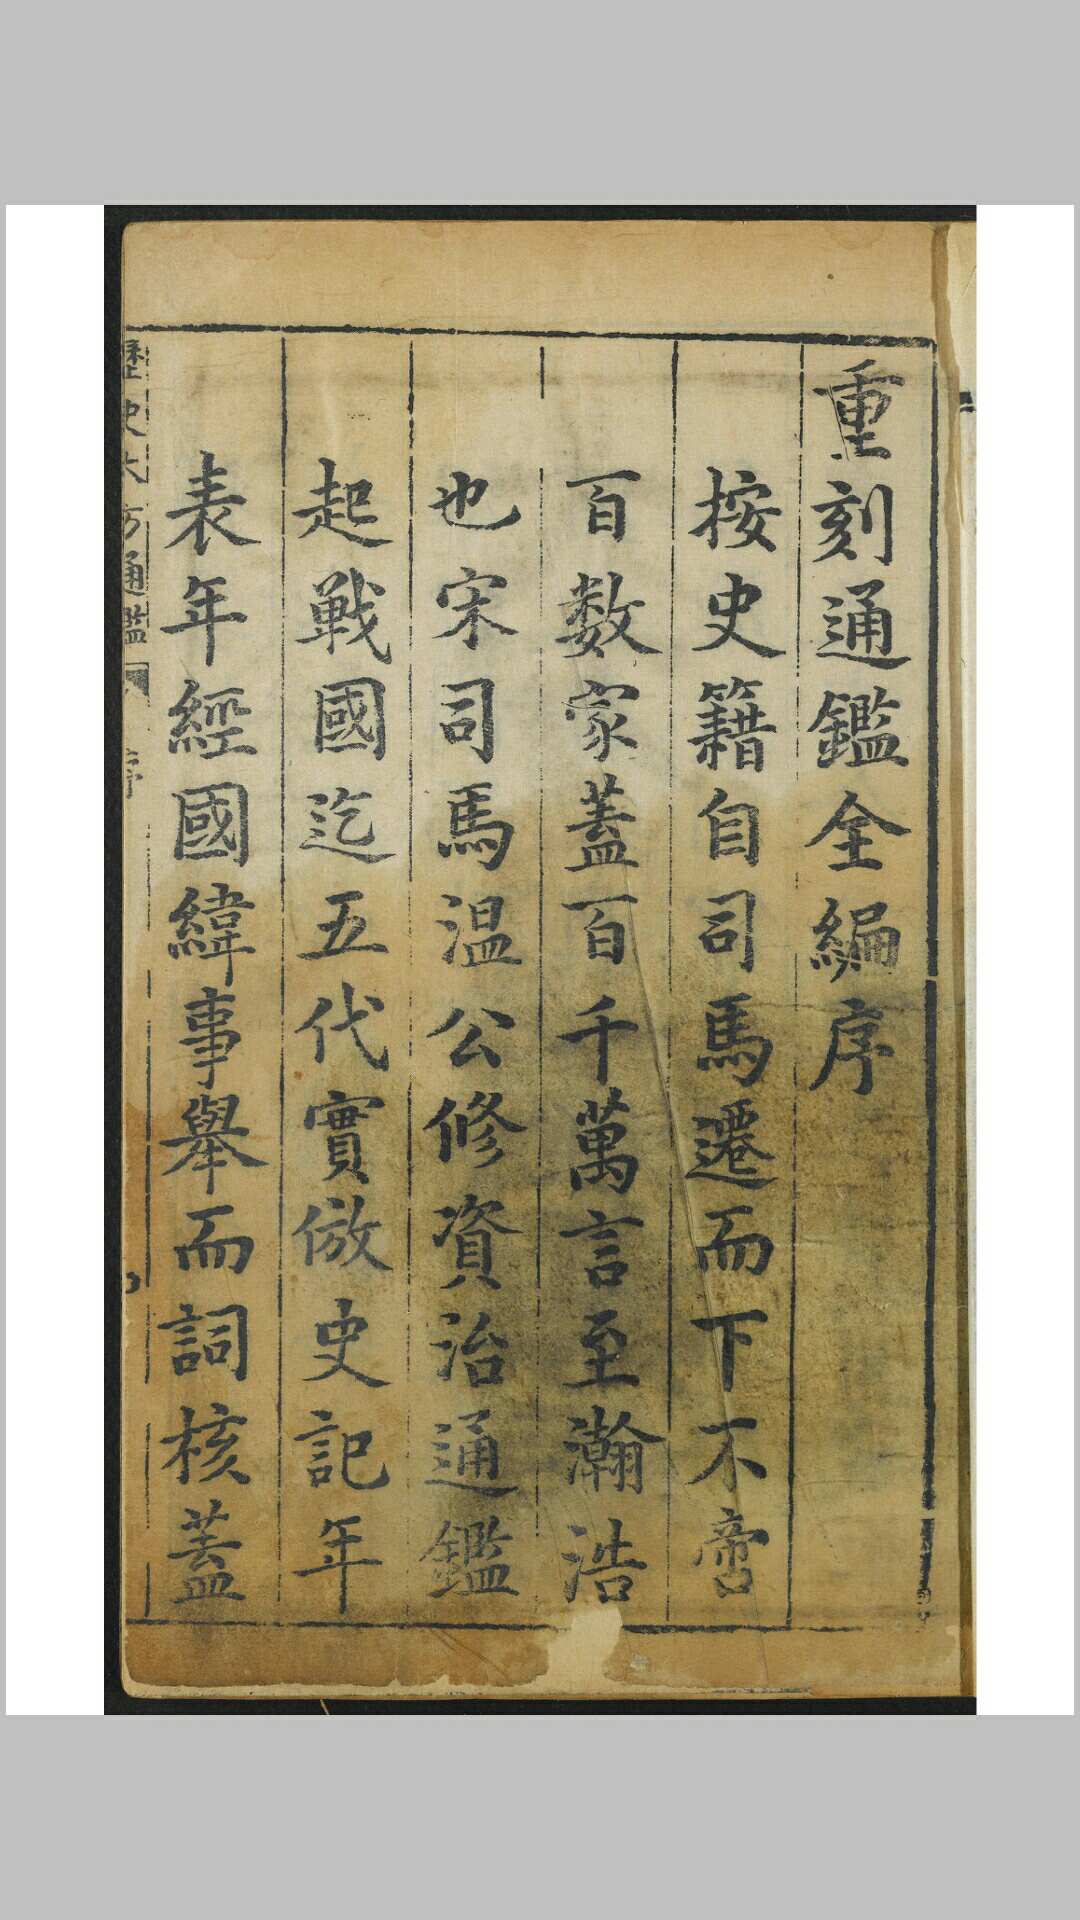 重刻通鑑全編序
按史籍自司馬遷而下不啻
百數家蓋百千萬言至瀚浩
也宋司馬温公修資治通鑑
起戰國迄五代實倣史記年
表年經國緯事舉而詞核蓋
歷史大方通鑑 序